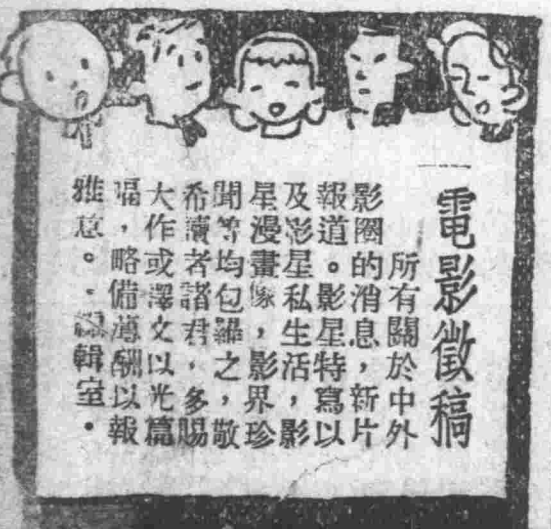 電影徵稿
所有關於中外
影圈的消息，新片
報道。影星特寫以
及影星私生活，影
星漫畫像，影界珍
聞等均包羅之，敬
希讀者諸君，多賜
大作或譯文以光篇
幅，略備薄酬以報
雅意。·編輯室·